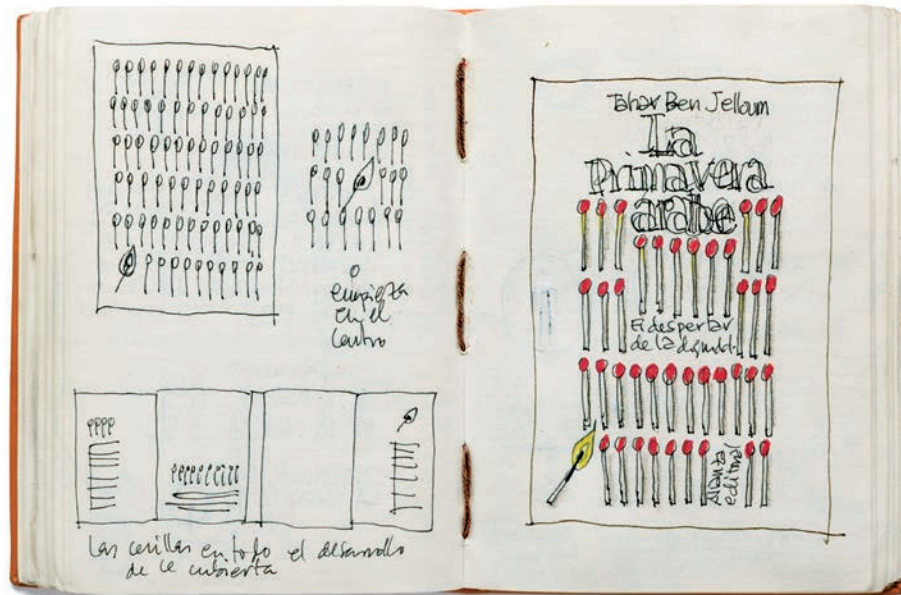 o
empieza
en el
centro
Las cerillas en todo el desarrollo
de la cubierta
Tahar Ben Jelloum
La
Primavera
arabe
El despertar
de la dignidd.
Alianza
editorial